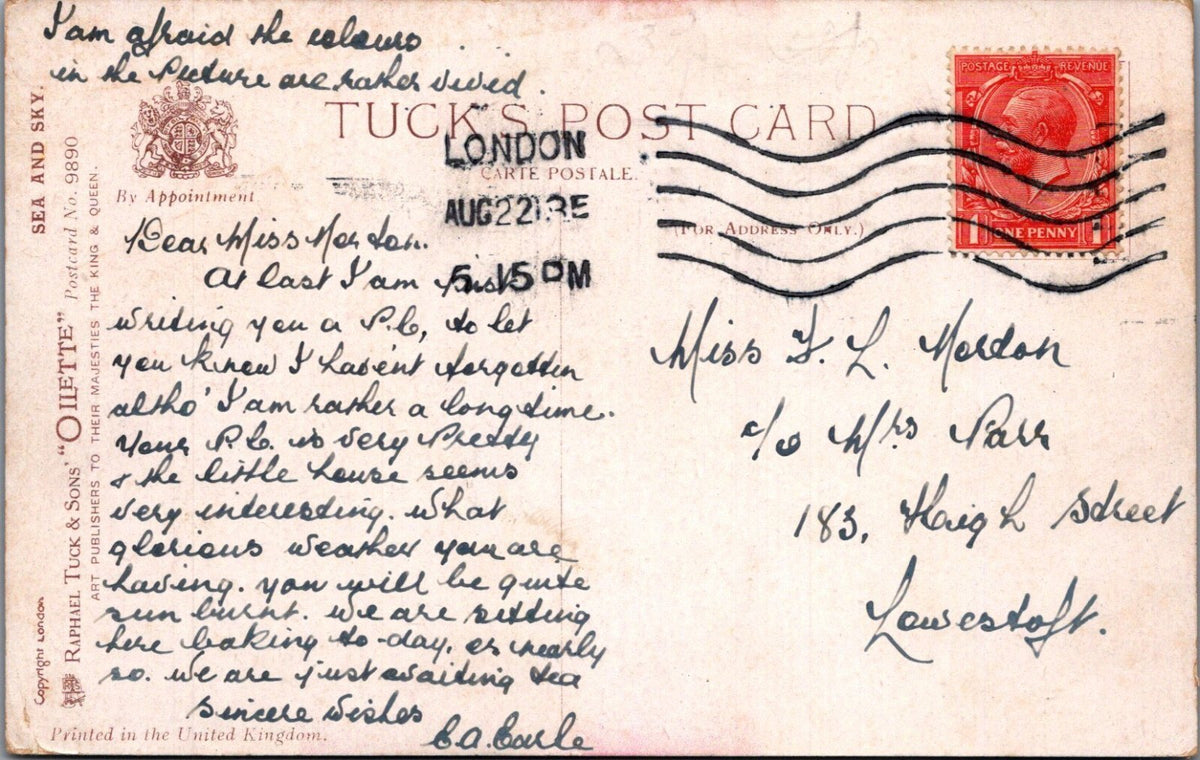 I am afraid the colours
in the Picture are rather vivid.
TUCK'S POST CARD
CARTE POSTALE.
(FOR ADDRESS ONLY.)
By Appointment
SEA AND SKY.
RAPHAEL TUCK & SONS' "OILETTE" Postcard No. 9890
ART PUBLISHERS TO THEIR MAJESTIES THE KING & QUEEN.
Copyright London
LONDON
AUG 22
5.15 PM
POSTAGE REVENUE
1 ONE PENNY 1
Dear Miss Mordon.
At last I am just
writing you a P.C, to let
you know I haven't forgotten
altho' I am rather a long time.
Your P.C. is very Pretty
& the little house seems
very interesting. What
glorious weather you are
having. you will be quite
sun burnt. We are sitting
here baking to-day, or nearly
so. We are just awaiting tea
Sincere Wishes
C.A. Earle
Printed in the United Kingdom.
Miss F. L. Mordon
c/o Mrs Parr
183, High Street
Lowestoft.